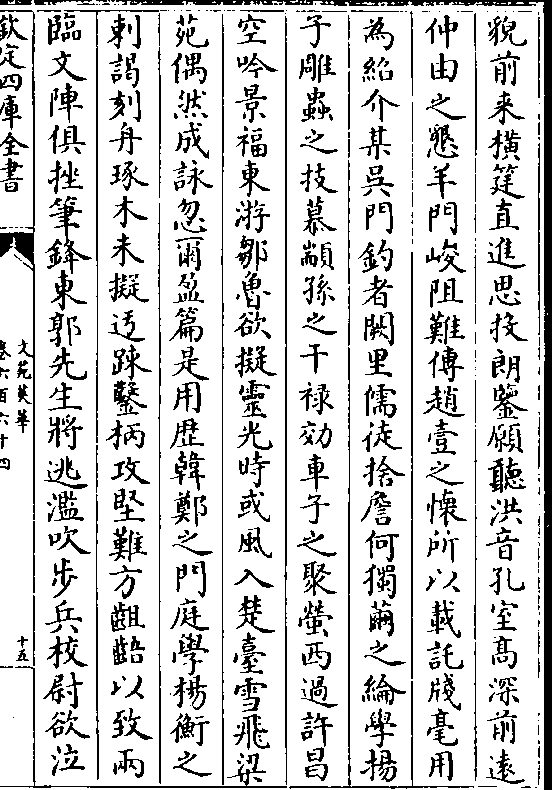 貌前来橫筵直進思投朗鑒願聽洪音孔室髙深前逺
仲由之懇羊門峻阻難傳趙壹之懐所以載託牋毫用
為紹介某吳門釣者闕里儒徒捨詹何獨繭之綸學揚
子雕蟲之技慕顓孫之干禄効車子之聚螢西過許昌
空吟景福東游鄒魯欲擬靈光時或風入楚臺雪飛梁
苑偶然成詠忽爾盈篇是用歴韓鄭之門庭學楊衡之
刺謁刻舟琢木未擬迃踈鑿枘攻堅難方齟齬以致兩
臨文陣俱挫筆鋒東郭先生將逃濫吹步兵校尉欲泣
欽定四庫全書
文苑英華
卷六百六十四
十五